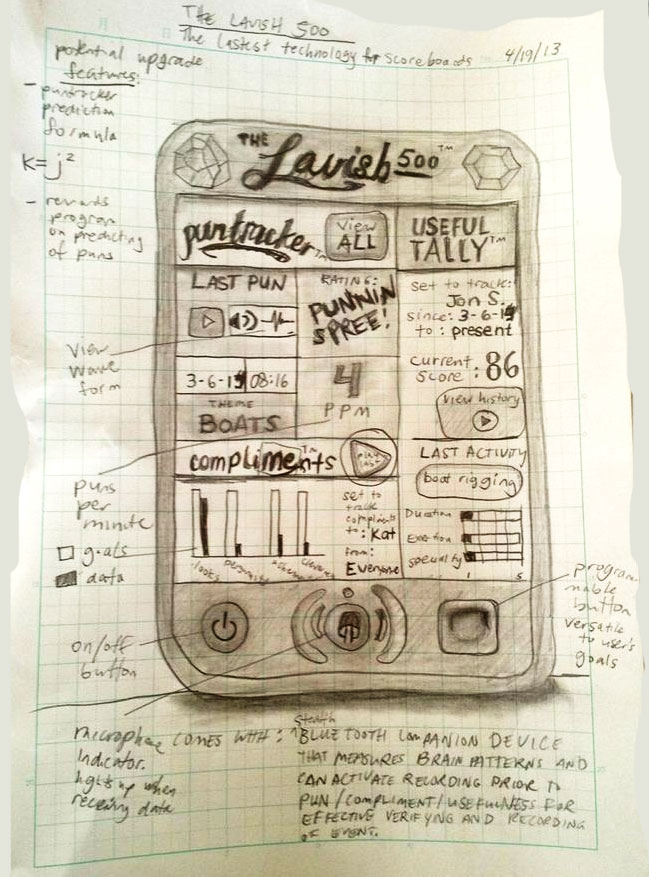 THE LAVISH 500
The lastest technology for scoreboards 4/19/13
potential upgrade
features:
- puntracker
prediction
formula
K=j²
- rewards
program
on predicting
of puns
THE Lavish 500™
puntracker™
View
ALL
USEFUL
TALLY™
LAST PUN
RATING:
PUNNIN
SPREE!
set to track:
Jon S.
since: 3-6-1
to: present
view
wave
form
3-6-1 08:16
4
PPM
current
score: 86
THEME
BOATS
view history
compliments™
play
last
LAST ACTIVITY
boat rigging
puns
per
minute
goals
data
set to
track
compliments
to: Kat
from:
Everyone
looks
Duration
Exertion
specialty
1 5
on/off
button
programmable
button
versatile
to user's
goals
microphone comes with:
indicator.
lights up when
receiving data
stealth
^BLUETOOTH COMPANION DEVICE
THAT MEASURES BRAIN PATTERNS AND
CAN ACTIVATE RECORDING PRIOR TO
PUN/COMPLIMENT/USEFULNESS FOR
EFFECTIVE VERIFYING AND RECORDING
OF EVENT.